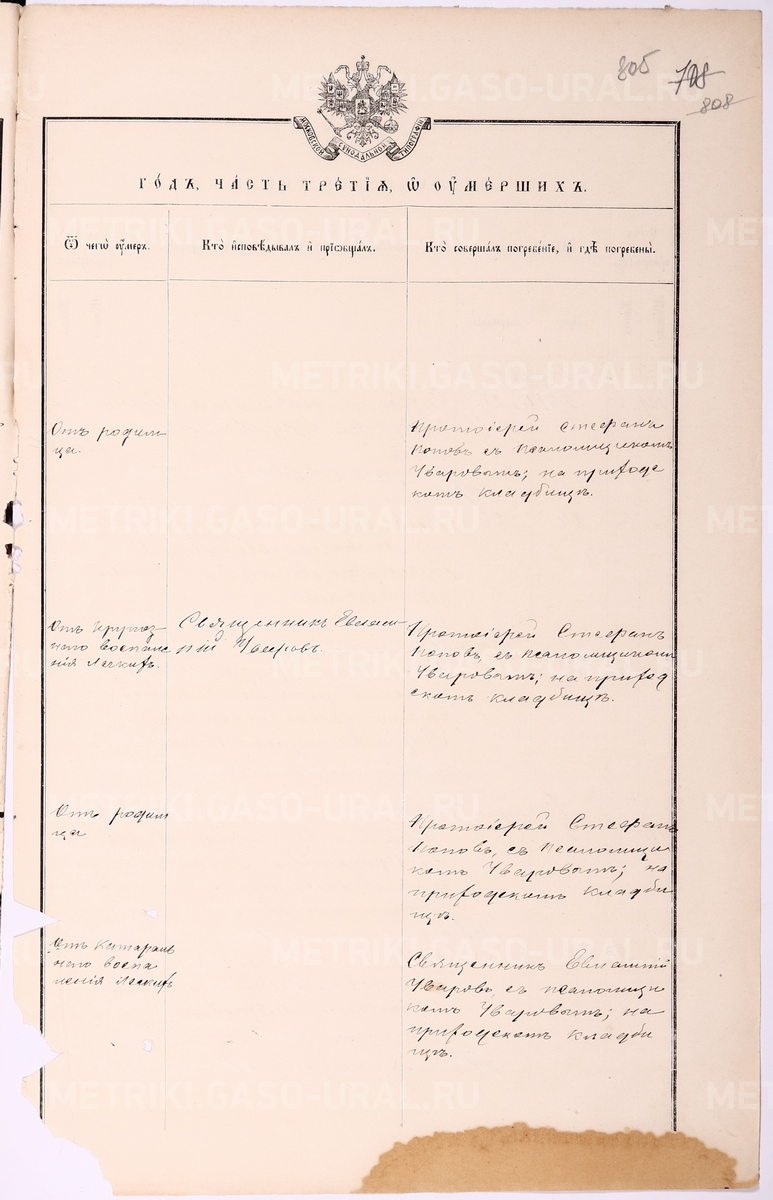 805 708
808
МОСКОВСКОЙ СѴНОДАЛЬНОЙ ТИПОГРАФІИ
ГОДЪ, ЧАСТЬ ТРЕТІЯ, Ѿ ОУМЕРШИХЪ.
Ѿ чегѡ оумеръ.
Кто исповѣдывалъ и пріобщалъ.
Кто совершалъ погребеніе, и гдѣ погребены.
Отъ родим
ца.
Протоіерей Стефанъ
Поповъ съ псаломщикомъ
Уваровымъ; на приходс
комъ кладбищѣ.
Отъ крупоз
наго воспале
нія легкихъ.
Священникъ Евлам
пій Уваровъ.
Протоіерей Стефанъ
Поповъ, съ псаломщикомъ
Уваровымъ; на приход
скомъ кладбищѣ.
Отъ родим
ца
Протоіерей Стефанъ
Поповъ, съ псаломщи
комъ Уваровымъ; на
приходскомъ кладби
щѣ.
Отъ катараль
наго воспа
ленія легкихъ
Священникъ Евлампій
Уваровъ, съ псаломщи
комъ Уваровымъ; на
приходскомъ кладби
щѣ.
METRIKI.GASO-URAL.RU